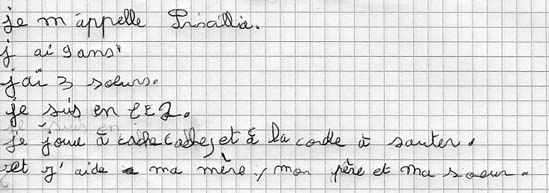 je m'appelle Priscillia.
j ai 9 ans
j'ai 3 soeurs.
je suis en CE2.
je joue à cache cache, et à la corde à sauter.
et j'aide a ma mère, mon père et ma soeur.